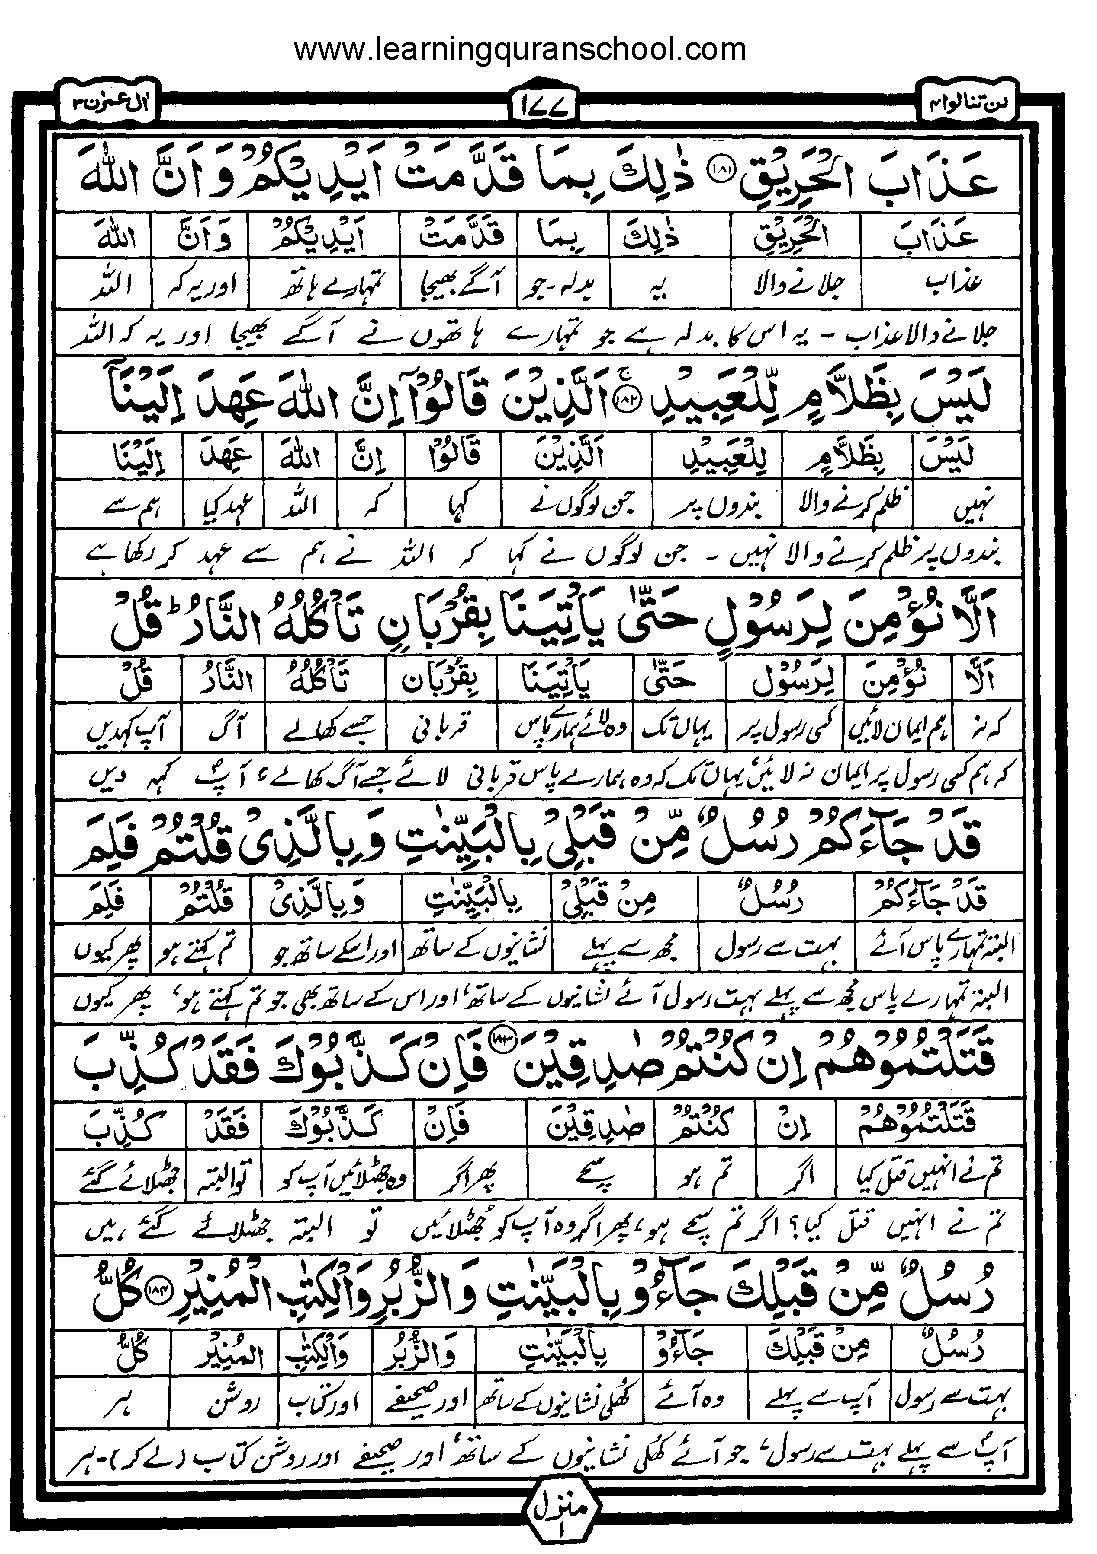 www.learningquranschool.com
لن تنالوا ۴ ۱۷۷ اٰل عمرٰن ۳
عَذَابَ الْحَرِيْقِ ۝۱۸۱ ذٰلِكَ بِمَا قَدَّمَتْ اَيْدِيْكُمْ وَ اَنَّ اللّٰهَ
عَذَابَ الْحَرِيْقِ ذٰلِكَ بِمَا قَدَّمَتْ اَيْدِيْكُمْ وَ اَنَّ اللّٰهَ
عذاب جلانے والا یہ بدلہ۔جو آگے بھیجا تمہارے ہاتھ اور یہ کہ اللہ
جلانے والا عذاب ۔ یہ اس کا بدلہ ہے جو تمہارے ہاتھوں نے آگے بھیجا اور یہ کہ اللہ
لَيْسَ بِظَلَّامٍ لِّلْعَبِيْدِ ۝۱۸۲ اَلَّذِيْنَ قَالُوْٓا اِنَّ اللّٰهَ عَهِدَ اِلَيْنَآ
لَيْسَ بِظَلَّامٍ لِلْعَبِيْدِ اَلَّذِيْنَ قَالُوْا اِنَّ اللّٰهَ عَهِدَ اِلَيْنَا
نہیں ظلم کرنے والا بندوں پر جن لوگوں نے کہا کہ اللہ عہد کیا ہم سے
بندوں پر ظلم کرنے والا نہیں ۔ جن لوگوں نے کہا کہ اللہ نے ہم سے عہد کر رکھا ہے
اَلَّا نُؤْمِنَ لِرَسُوْلٍ حَتّٰى يَاْتِيَنَا بِقُرْبَانٍ تَاْكُلُهُ النَّارُ ؕ قُلْ
اَلَّا نُؤْمِنَ لِرَسُوْلٍ حَتّٰى يَاْتِيَنَا بِقُرْبَانٍ تَاْكُلُهُ النَّارُ قُلْ
کہ نہ ہم ایمان لائیں کسی رسول پر یہاں تک وہ لائے ہمارے پاس قربانی جسے کھالے آگ آپ کہدیں
کہ ہم کسی رسول پر ایمان نہ لائیں یہاں تک کہ وہ ہمارے پاس قربانی لائے جسے آگ کھالے، آپؐ کہہ دیں
قَدْ جَآءَكُمْ رُسُلٌ مِّنْ قَبْلِيْ بِالْبَيِّنٰتِ وَ بِالَّذِيْ قُلْتُمْ فَلِمَ
قَدْ جَآءَكُمْ رُسُلٌ مِنْ قَبْلِيْ بِالْبَيِّنٰتِ وَ بِالَّذِيْ قُلْتُمْ فَلِمَ
البتہ تمہارے پاس آئے بہت سے رسول مجھ سے پہلے نشانیوں کے ساتھ اور اسکے ساتھ جو تم کہتے ہو پھر کیوں
البتہ تمہارے پاس مجھ سے پہلے بہت رسول آئے نشانیوں کے ساتھ، اور اس کے ساتھ بھی جو تم کہتے ہو، پھر کیوں
قَتَلْتُمُوْهُمْ اِنْ كُنْتُمْ صٰدِقِيْنَ ۝۱۸۳ فَاِنْ كَذَّبُوْكَ فَقَدْ كُذِّبَ
قَتَلْتُمُوْهُمْ اِنْ كُنْتُمْ صٰدِقِيْنَ فَاِنْ كَذَّبُوْكَ فَقَدْ كُذِّبَ
تم نے انہیں قتل کیا اگر تم ہو سچے پھر اگر وہ جھٹلائیں آپ کو تو البتہ جھٹلائے گئے
تم نے انہیں قتل کیا؟ اگر تم سچے ہو، پھر اگر وہ آپ کو جھٹلائیں تو البتہ جھٹلائے گئے ہیں
رُسُلٌ مِّنْ قَبْلِكَ جَآءُوْ بِالْبَيِّنٰتِ وَ الزُّبُرِ وَ الْكِتٰبِ الْمُنِيْرِ ۝۱۸۴ كُلُّ
رُسُلٌ مِنْ قَبْلِكَ جَآءُوْ بِالْبَيِّنٰتِ وَ الزُّبُرِ وَ الْكِتٰبِ الْمُنِيْرِ كُلُّ
بہت سے رسول آپ سے پہلے وہ آئے کھلی نشانیوں کے ساتھ اور صحیفے اور کتاب روشن ہر
آپؐ سے پہلے بہت سے رسول، جو آئے کھلی نشانیوں کے ساتھ، اور صحیفے اور روشن کتاب (لے کر)۔ ہر
منزل ۱